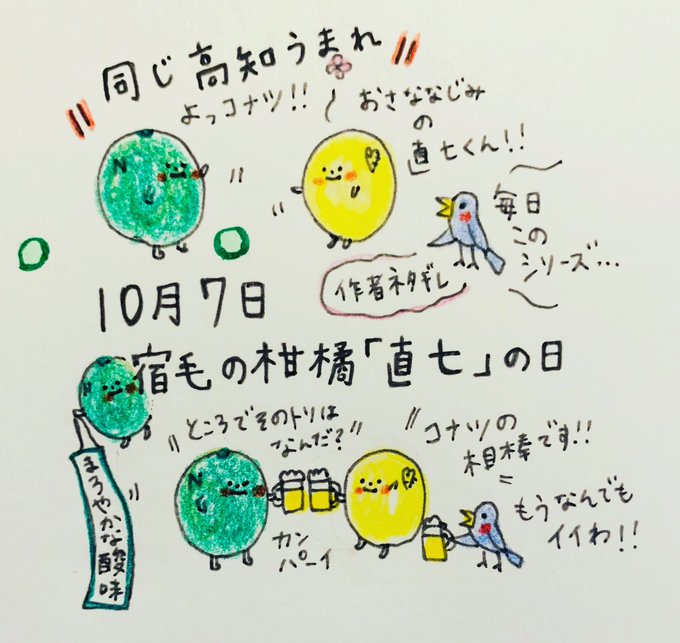 同じ高知うまれ
よっコナツ!!
おさななじみ
の
直七くん!!
N
毎日
この
シリーズ…
作者ネタギレ
10月7日
宿毛の柑橘「直七」の日
N
ところでそのトリは
なんだ?
コナツの
相棒です!!
N
カン
パーイ
もうなんでも
イイわ!!
まろやかな酸味